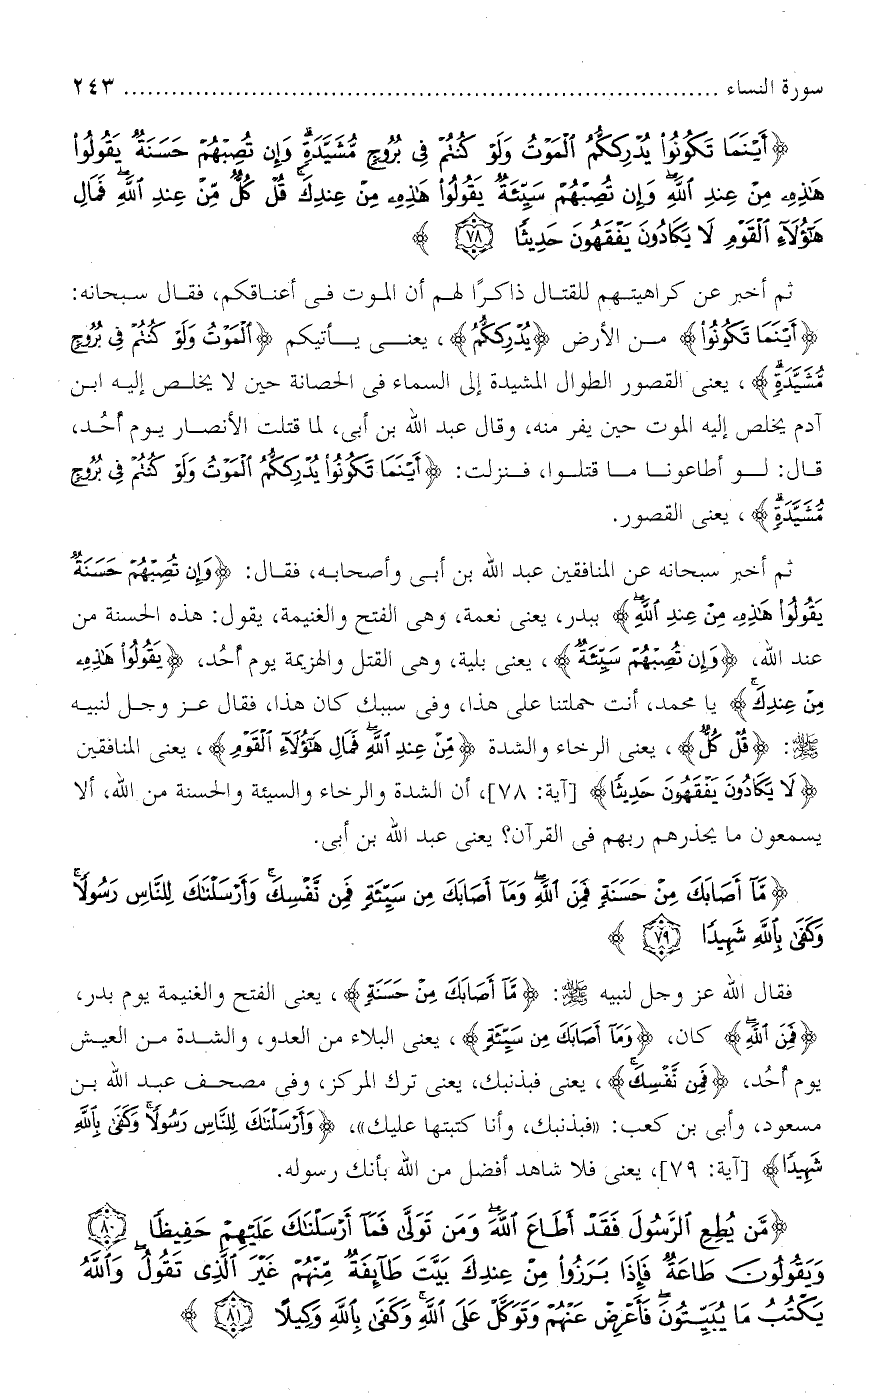 سورة النساء ........................................................................... ٢٤٣
﴿أَيْنَمَا تَكُونُوا۟ يُدْرِككُّمُ ٱلْمَوْتُ وَلَوْ كُنتُمْ فِى بُرُوجٍ مُّشَيَّدَةٍۗ وَإِن تُصِبْهُمْ حَسَنَةٌ يَقُولُوا۟
هَـٰذِهِۦ مِنْ عِندِ ٱللَّهِۖ وَإِن تُصِبْهُمْ سَيِّئَةٌ يَقُولُوا۟ هَـٰذِهِۦ مِنْ عِندِكَۚ قُلْ كُلٌّ مِّنْ عِندِ ٱللَّهِۖ فَمَالِ
هَـٰٓؤُلَآءِ ٱلْقَوْمِ لَا يَكَادُونَ يَفْقَهُونَ حَدِيثًا ٧٨ ﴾
ثم أخبر عن كراهيتهم للقتال ذاكرًا لهم أن الموت فى أعناقكم، فقال سبحانه:
﴿أَيْنَمَا تَكُونُوا۟﴾ من الأرض ﴿يُدْرِككُّمُ﴾، يعنى يأتيكم ﴿ٱلْمَوْتُ وَلَوْ كُنتُمْ فِى بُرُوجٍ
مُّشَيَّدَةٍۗ﴾، يعنى القصور الطوال المشيدة إلى السماء فى الحصانة حين لا يخلص إليه ابن
آدم يخلص إليه الموت حين يفر منه، وقال عبد الله بن أبى، لما قتلت الأنصار يوم أُحُد،
قال: لو أطاعونا ما قتلوا، فنزلت: ﴿أَيْنَمَا تَكُونُوا۟ يُدْرِككُّمُ ٱلْمَوْتُ وَلَوْ كُنتُمْ فِى بُرُوجٍ
مُّشَيَّدَةٍۗ﴾، يعنى القصور.
ثم أخبر سبحانه عن المنافقين عبد الله بن أبى وأصحابه، فقال: ﴿وَإِن تُصِبْهُمْ حَسَنَةٌ
يَقُولُوا۟ هَـٰذِهِۦ مِنْ عِندِ ٱللَّهِۖ﴾ ببدر، يعنى نعمة، وهى الفتح والغنيمة، يقول: هذه الحسنة من
عند الله، ﴿وَإِن تُصِبْهُمْ سَيِّئَةٌ﴾، يعنى بلية، وهى القتل والهزيمة يوم أُحُد، ﴿يَقُولُوا۟ هَـٰذِهِۦ
مِنْ عِندِكَۚ﴾ يا محمد، أنت حملتنا على هذا، وفى سببك كان هذا، فقال عز وجل لنبيه
ﷺ: ﴿قُلْ كُلٌّ﴾، يعنى الرخاء والشدة ﴿مِّنْ عِندِ ٱللَّهِۖ فَمَالِ هَـٰٓؤُلَآءِ ٱلْقَوْمِ﴾، يعنى المنافقين
﴿لَا يَكَادُونَ يَفْقَهُونَ حَدِيثًا﴾ [آية: ٧٨]، أن الشدة والرخاء والسيئة والحسنة من الله، ألا
يسمعون ما يحذرهم ربهم فى القرآن؟ يعنى عبد الله بن أبى.
﴿مَّآ أَصَابَكَ مِنْ حَسَنَةٍ فَمِنَ ٱللَّهِۖ وَمَآ أَصَابَكَ مِن سَيِّئَةٍ فَمِن نَّفْسِكَۚ وَأَرْسَلْنَـٰكَ لِلنَّاسِ رَسُولًاۚ
وَكَفَىٰ بِٱللَّهِ شَهِيدًا ٧٩ ﴾
فقال الله عز وجل لنبيه ﷺ: ﴿مَّآ أَصَابَكَ مِنْ حَسَنَةٍ﴾، يعنى الفتح والغنيمة يوم بدر،
﴿فَمِنَ ٱللَّهِۖ﴾ كان، ﴿وَمَآ أَصَابَكَ مِن سَيِّئَةٍ﴾، يعنى البلاء من العدو، والشدة من العيش
يوم أُحُد، ﴿فَمِن نَّفْسِكَۚ﴾، يعنى فبذنبك، يعنى ترك المركز، وفى مصحف عبد الله بن
مسعود، وأبى بن كعب: «فبذنبك، وأنا كتبتها عليك»، ﴿وَأَرْسَلْنَـٰكَ لِلنَّاسِ رَسُولًاۚ وَكَفَىٰ بِٱللَّهِ
شَهِيدًا﴾ [آية: ٧٩]، يعنى فلا شاهد أفضل من الله بأنك رسوله.
﴿مَّن يُطِعِ ٱلرَّسُولَ فَقَدْ أَطَاعَ ٱللَّهَۖ وَمَن تَوَلَّىٰ فَمَآ أَرْسَلْنَـٰكَ عَلَيْهِمْ حَفِيظًا ٨٠
وَيَقُولُونَ طَاعَةٌ فَإِذَا بَرَزُوا۟ مِنْ عِندِكَ بَيَّتَ طَآئِفَةٌ مِّنْهُمْ غَيْرَ ٱلَّذِى تَقُولُۖ وَٱللَّهُ
يَكْتُبُ مَا يُبَيِّتُونَۖ فَأَعْرِضْ عَنْهُمْ وَتَوَكَّلْ عَلَى ٱللَّهِۚ وَكَفَىٰ بِٱللَّهِ وَكِيلًا ٨١ ﴾